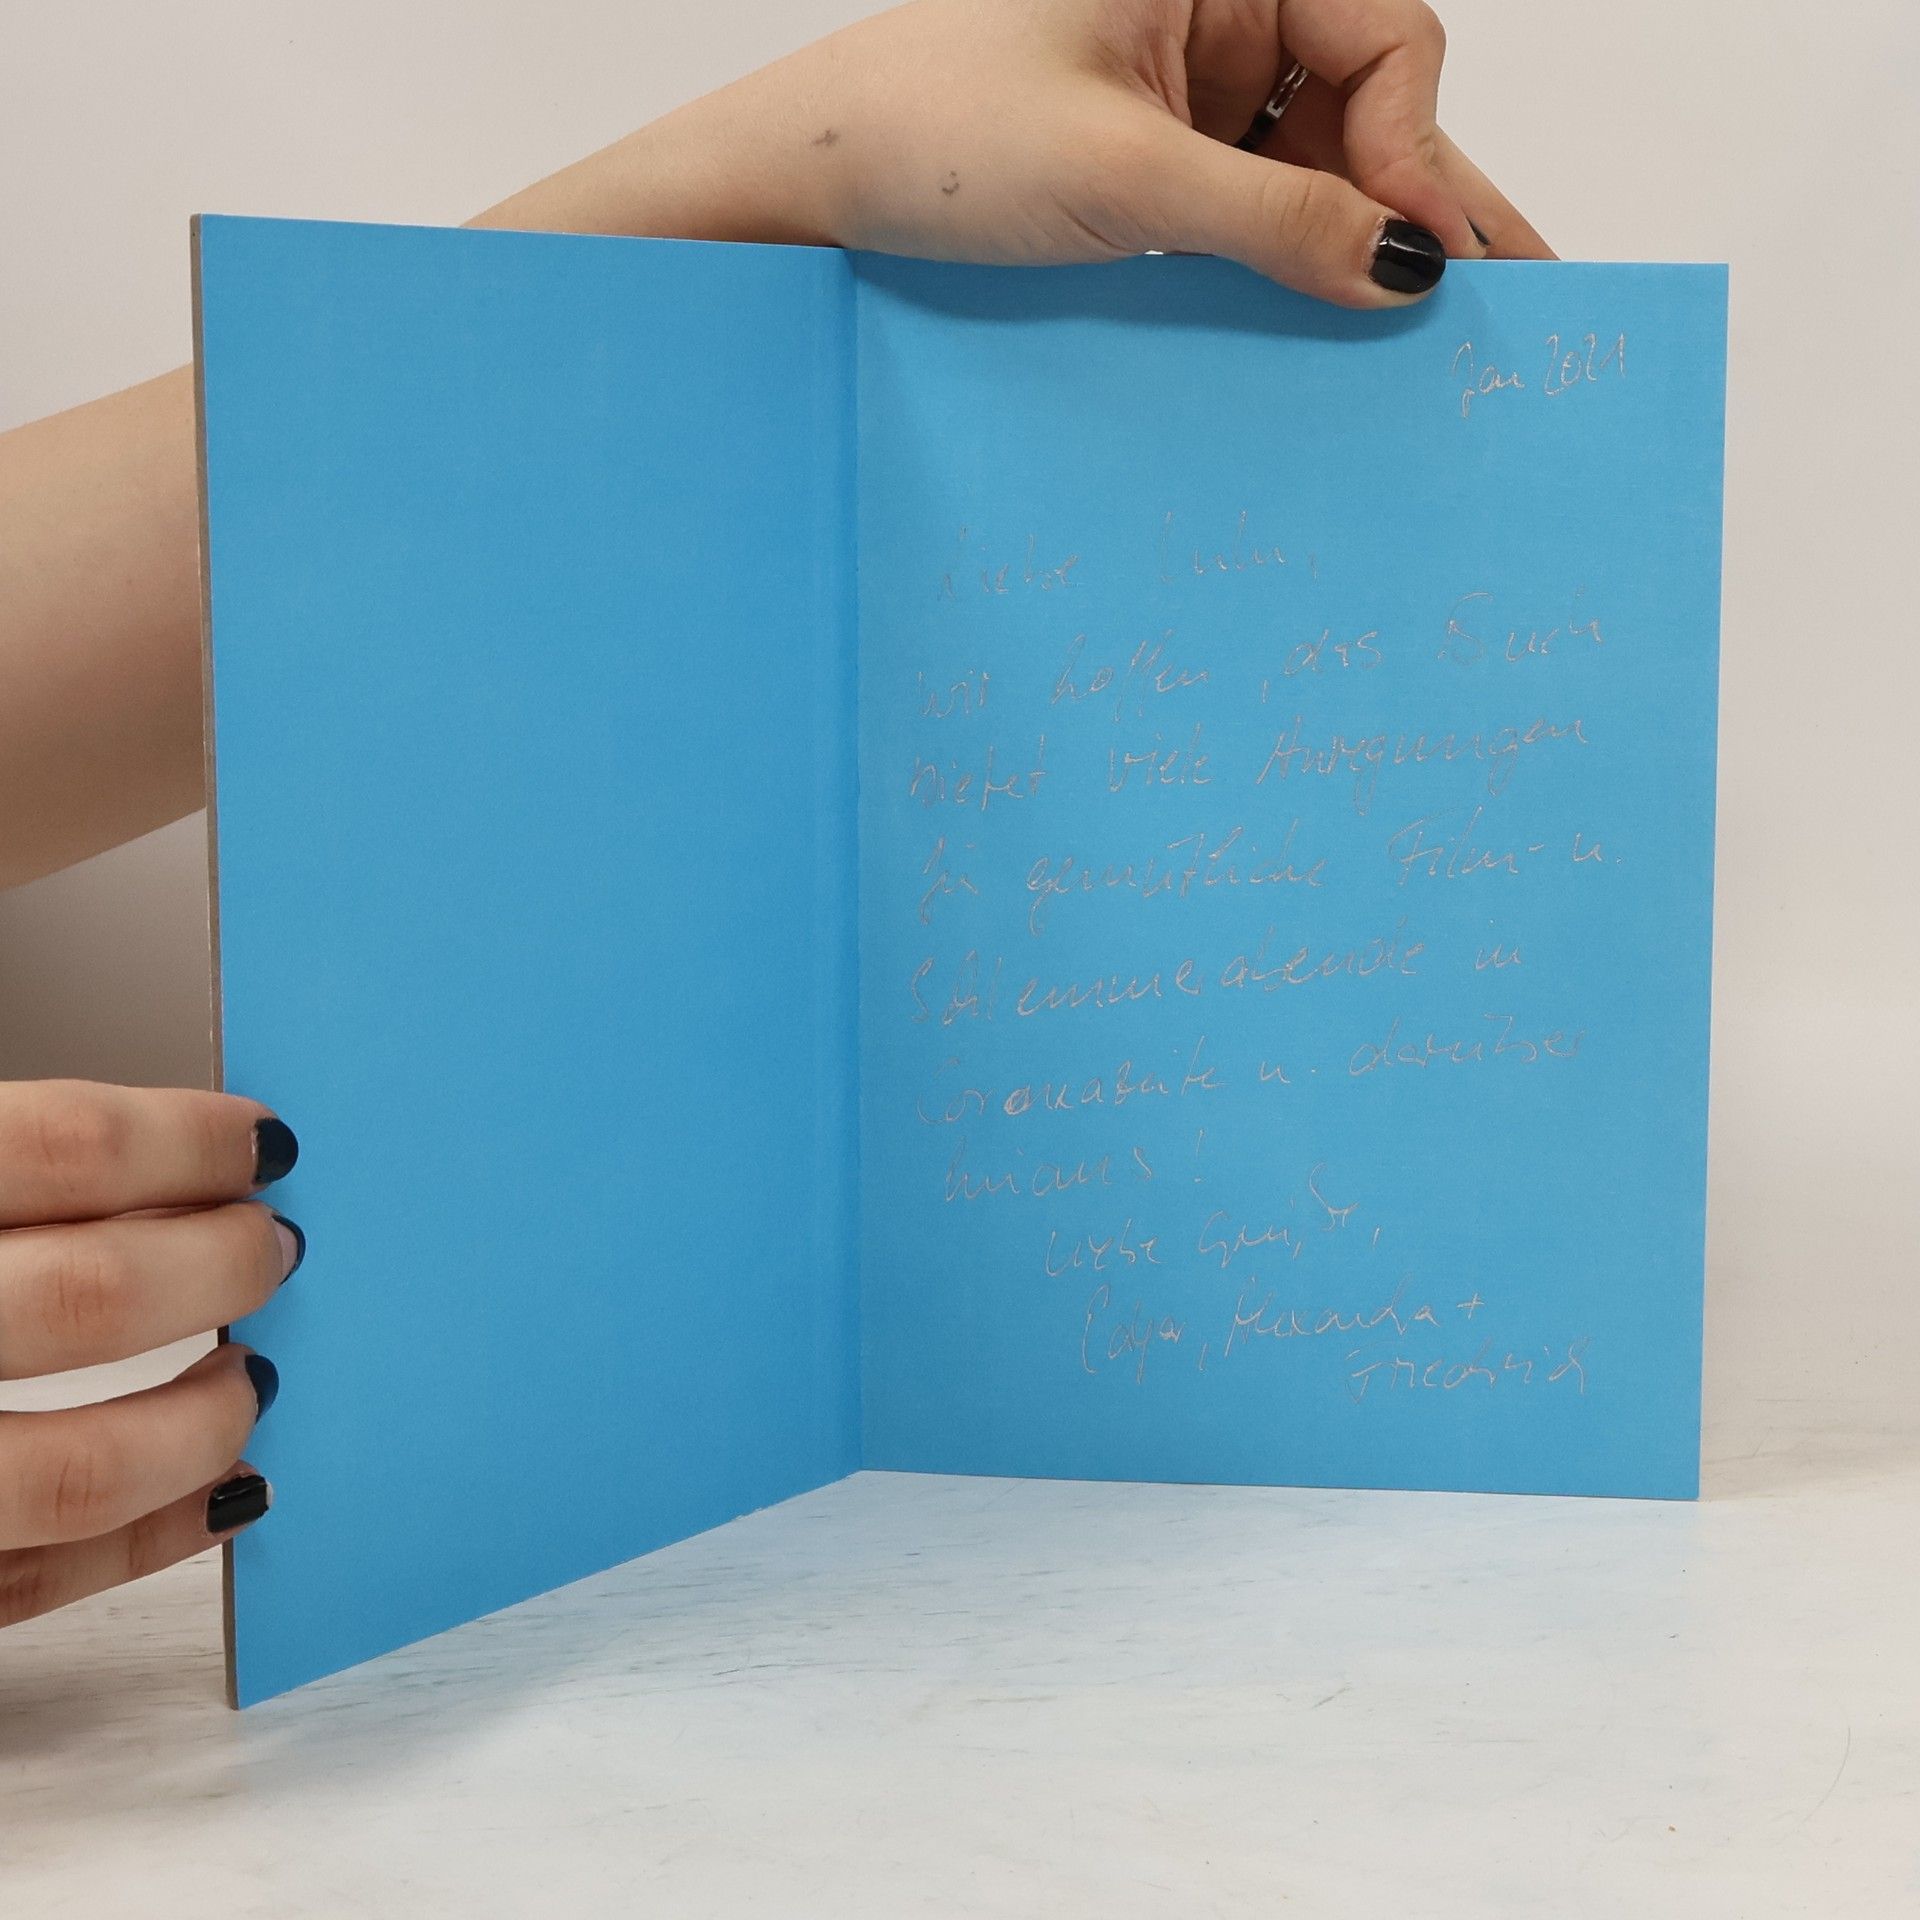 Jan 2021
Liebe Lulu,
wir hoffen, das Buch
bietet viele Anregungen
für gemütliche Film- u.
Schlemmerabende in
Coronazeite u. darüber
hinaus!
Liebe Grüße,
Edgar, Alexandra +
Friedrich